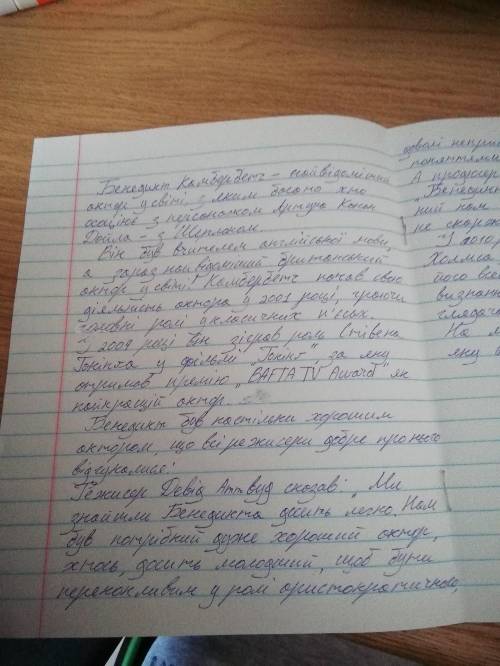 Бенедикт Камбербетч – найвідоміший
актор у світі, з яким багато хто
асоціює з персонажом Артура Конан
Дойла – з Шерлоком.
Він був вчителем англійської мови,
а зараз найвідоміший британський
актор у світі. Камбербетч почав свою
діяльність актора у 2001 році, граючи
головні ролі у класичних п'єсах.
У 2004 році він зіграв роль Стівена
Гокінга у фільмі "Гокінг", за яку
отримав премію "BAFTA TV Award" як
найкращий актор.
Бенедикт був настільки хорошим
актором, що всі режисери добре про нього
відзувалися!
Режисер Девід Аттвуд сказав: „Ми
знайшли Бенедикта досить легко, Нам
був потрібний дуже хороший актор,
хтось, досить молодший, щоб бути
переконливим у ролі аристократичного,
доволі
А
не
"У 2010,
Холмса
його
визнання
глядача
На
яку